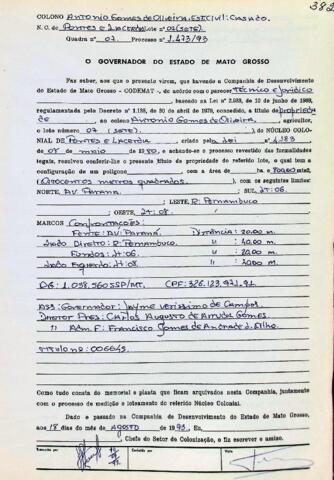 382
COLONO Antonio Gomes de Oliveira. EST. CIVIL: Casado.
N.C. de PONTES E LACERDA Lote nº 07 (SETE).
Quadra nº 07. Processo nº 1.473/93
O GOVERNADOR DO ESTADO DE MATO GROSSO
Faz saber, aos que o presente virem, que havendo a Companhia de Desenvolvimento
do Estado de Mato Grosso - CODEMAT -, de acôrdo com o parecer Técnico e Jurídico
baseado na Lei nº 2.938, de 10 de junho de 1969,
regulamentada pelo Decreto nº 1.138, de 30 de abril de 1970, concedido o título de Propriedade
de ao colono Antonio Gomes de Oliveira, agricultor,
o lote número 07 (SETE) do NÚCLEO COLO-
NIAL DE PONTES e Lacerda, criado pela Lei
de de maio de e achando-se o processo revestido das formalidades
legais, resolveu conferir-lhe o presente título da propriedade do referido lote, o qual tem a
configuração de um polígono com a área de ha. 800,00 m2
(Oitocentos metros quadrados), com os seguintes limites:
NORTE, AV. PARANÁ ; SUL, LT: 06.
; LESTE, R. Pernambuco
; OESTE, LT: 08.
MARCOS Confrontações:
Frente: AV: PARANÁ. Distância: 20.00 m.
Lado Direito: R. Pernambuco. " 40.00 m.
Fundos: LT: 06. " 20.00 m.
Lado Esquerdo: LT: 08 " 40.00 m.
CPF: 326.123.921.91
ASS: Governador: Jayme Verissimo de Campos.
Diretor Pres: Carlos Augusto de Arruda Gomes.
" Adm F: Francisco Gomes de Andrade L. Filho.
Titulo nº: 006645.
Como tudo consta do memorial e planta que ficam arquivados nesta Companhia, juntamente
com o processo de medição e loteamento do referido Núcleo Colonial.
Dado e passado na Companhia de Desenvolvimento do Estado de Mato Grosso,
aos 18 dias do mês de Agosto de 1993. Eu,
Chefe do Setor de Colonização, o fiz escrever e assino.